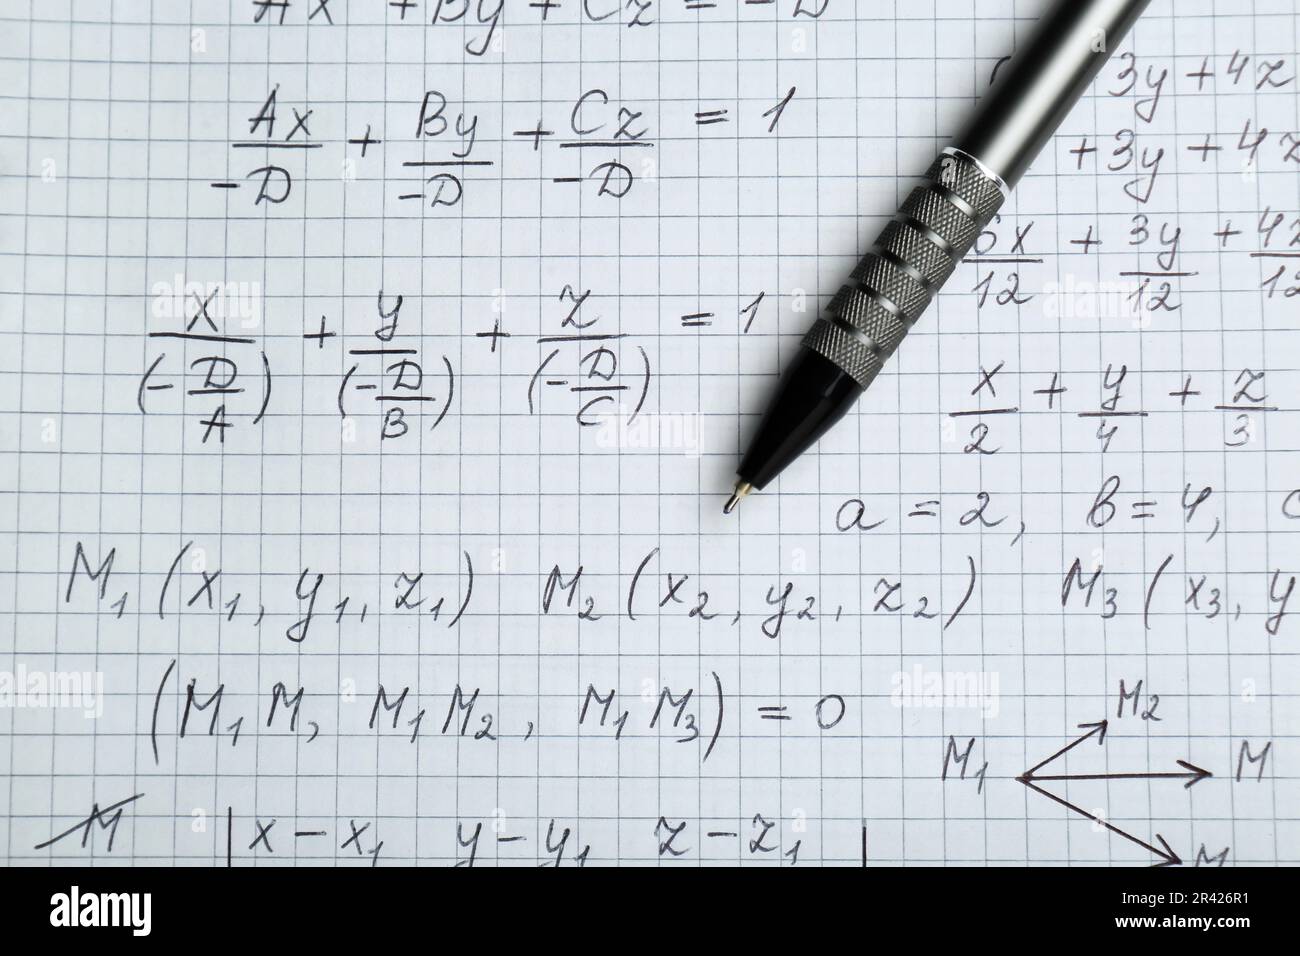 Ax + By + Cz = -D
Ax/-D + By/-D + Cz/-D = 1
x/(-D/A) + y/(-D/B) + z/(-D/C) = 1
3y + 4z
+ 3y + 4z
6x/12 + 3y/12 + 4z/12
x/2 + y/4 + z/3
a = 2, b = 4,
M₁ (x₁, y₁, z₁) M₂ (x₂, y₂, z₂) M₃ (x₃, y
(M₁M, M₁M₂, M₁M₃) = 0
M₂
M₁ M
M
M | x - x₁ y - y₁ z - z₁ |
alamy
Image ID: 2R426R1
www.alamy.com